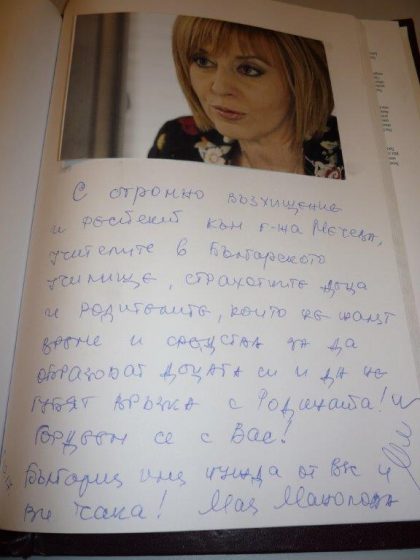 С огромно възхищение
и респект към г-жа Нечева,
учителите в Българското
училище, страхотните деца
и родителите, които не жалят
време и средства за да
образоват децата си и да не
губят връзка с Родината!
Гордеем се с Вас!
България има нужда от вас и
Ви чака! Мая Манолова